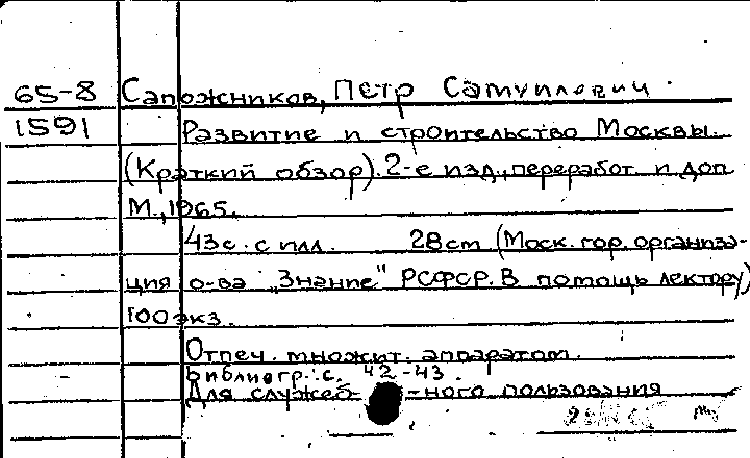 65-8 Сапожников, Петр Самуилович.
1591 Развитие и строительство Москвы.
(Краткий обзор). 2-е изд., переработ. и доп.
М., 1965.
43 с. с илл. 28 см (Моск. гор. организа-
ция о-ва "Знание" РСФСР. В помощь лектору)
100 экз.
Отпеч. множит. аппаратом.
Библиогр.: с. 42-43.
Для служеб-ного пользования